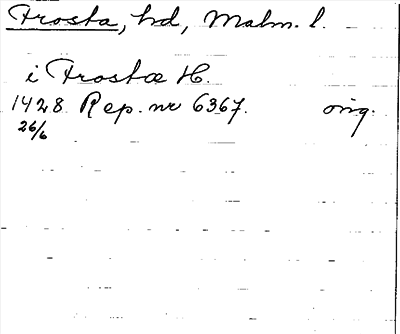 Frosta, hd, Malm. l.
i Frostæ H.
1428 Rep. nr 6367. orig.
26/6